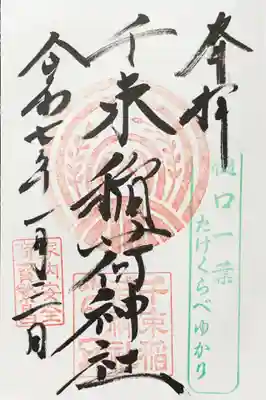 奉拝
樋口一葉
たけくらべゆかり
千束稲荷神社
千束稲
令和七年一月三日
家内安全